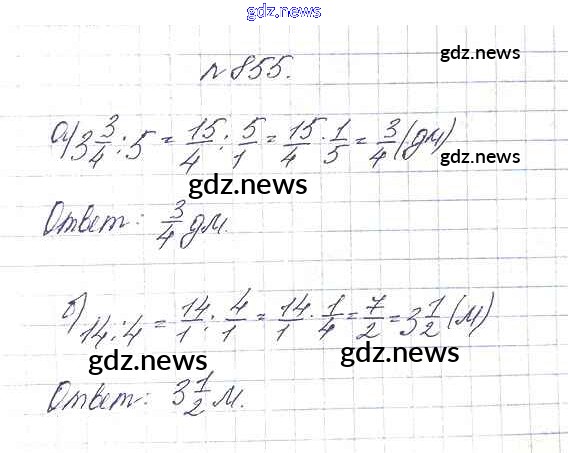 gdz.news
gdz.news
№855.
а) 3 3/4 : 5 = 15/4 : 5/1 = 15/4 · 1/5 = 3/4 (дм)
gdz.news
gdz.news
gdz.news
Ответ: 3/4 дм.
б) 14 : 4 = 14/1 : 4/1 = 14/1 · 1/4 = 7/2 = 3 1/2 (м)
gdz.news
gdz.news
Ответ: 3 1/2 м.